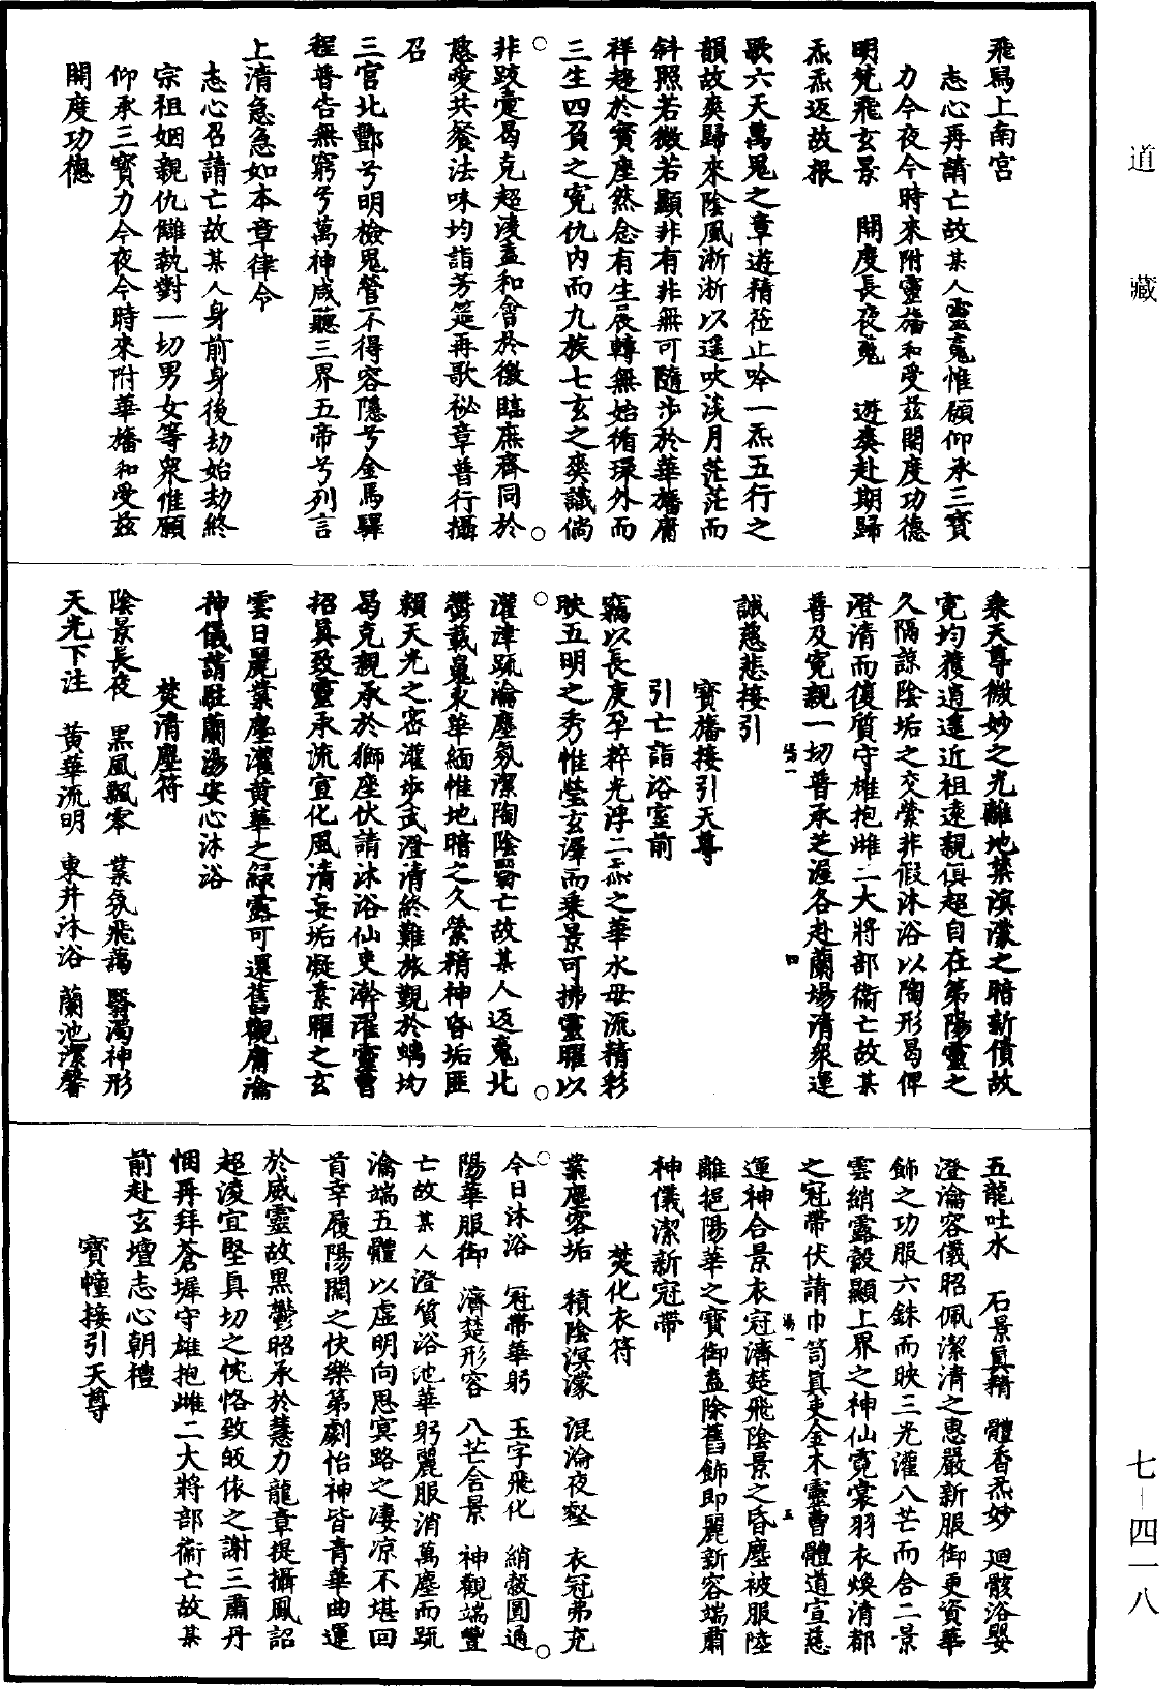 飛舄上南宮
志心再請亡故某人靈䰟惟願仰承三寶
力今夜今時來附靈旛和受玆開度功德
明梵飛玄景　開度長夜䰟　遊爽赴期歸
炁炁返故根
歌六天萬鬼之章遊精莅止吟一炁五行之
韻故爽歸來陰風淅淅以遥吹淡月茫茫而
斜照若微若顯非有非無可隨步於華旛庸
祥趨於寳座然念有生展轉無始循環外而
三生四負之寃仇內而九族七玄之爽識倘
非跂䘮曷克超淩盍和會於徽臨庶齊同於
慈愛共餐法味均詣芳筵再歌祕章普行攝
召
三宮北酆兮明檢鬼營不得容隱兮金馬驛
程普告無窮兮萬神咸聽三界五帝兮列言
上清急急如本章律令
志心召請亡故某人身前身後劫始劫終
宗祖姻親仇讎執對一切男女等衆惟願
仰承三寳力今夜今時來附華旛和受兹
開度功德
乘天尊微妙之光離地禁溟濛之暗新債故
寃均獲逍遥近祖遠親俱超自在第陽靈之
久隔諒陰垢之交縈非假沐浴以陶形曷俾
澄清而復質守雄抱雌二大將部衞亡故某
普及寃親一切普承芝渥各赴蘭場清衆運
誠慈悲接引
寳旛接引天尊
引亡詣浴室前
竊以長庚孕粹光浮二炁之華水母流精彩
映五明之秀惟瑩玄澤而乘景可拂靈曜以
濯津䟽瀹塵氛潔陶陰翳亡故某人返䰟北
鬱載鬼東華緬惟地暗之久縈精神昏垢匪
賴天光之密灌步武澄清終難旅覲於螭均
曷克親承於獅座伏請沐浴仙吏澣濯靈曹
招眞致靈承流宣化風清妄垢凝素曜之玄
雲日麗業塵灌黄華之絳露可還舊觀庸瀹
神儀請駐蘭湯安心沐浴
焚清塵符
陰景長夜　黒風飄零　業氛飛藹　翳濁神形
天光下注　黄華流明　東井沐浴　蘭池潔馨
五龍吐水　石景眞精　體香炁妙　廻骸浴嬰
澄瀹容儀昭佩潔清之惠嚴新服御更資華
飾之功服六銖而映三光灌八芒而含二景
雲綃露縠顯上界之神仙霓裳羽衣煥清都
之冠帶伏請巾笥眞吏金木靈曹體道宣慈
運神合景衣冠濟楚飛陰景之昏塵被服陸
離挹陽華之寳御盍除舊飾即麗新容端肅
神儀潔新冠帶
焚化衣符
業塵宻垢　積陰溟濛　混淪夜壑　衣冠弗充
今日沐浴　冠帶華躬　玉字飛化　綃縠圓通
陽華服御　濟楚形容　八芒含景　神觀端豐
亡故某人澄質浴池華躬麗服消萬塵而䟽
瀹端五體以虛明向思冥路之凄凉不堪回
首幸履陽關之快樂第劇怡神皆青華曲運
於威靈故黒鬱昭承於慧力龍章提攝鳳詔
超淩宜堅真切之忱恪致皈依之謝三肅丹
悃再拜蒼墀守雄抱雌二大將部衞亡故某
前赴玄壇志心朝禮
寳幢接引天尊
湯一
四
湯一
五
道藏
七—四一八